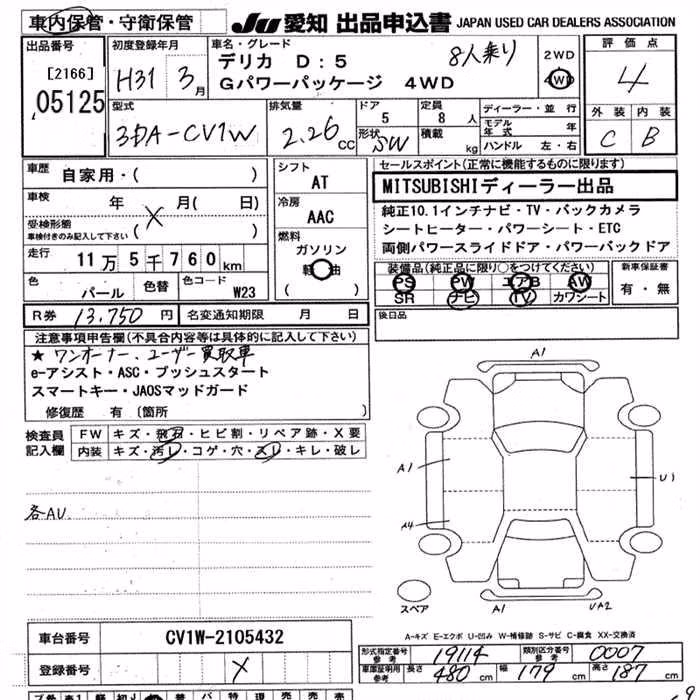 車内保管・守衛保管 JU 愛知 出品申込書 JAPAN USED CAR DEALERS ASSOCIATION
出品番号 [2166] 05125
初度登録年月 H31 3月
車名・グレード デリカ D:5 8人乗り
Gパワーパッケージ 4WD
2WD 4WD
評価点 4
外装 内装
C B
型式 3DA-CV1W
排気量 2.26CC
ドア 5 定員 8人
形状 SW 積載 kg
ディーラー・並行
モデル年式 年
ハンドル 左・右
車歴 自家用・( )
車検 年 月( 日)
受検形態 車検付きのみ記入して下さい ( X )
走行 11万5千760km
色 パール 色替 色コード W23
シフト AT
冷房 AAC
燃料 ガソリン 軽油 ( )
セールスポイント(正常に機能するものに限ります)
MITSUBISHIディーラー出品
純正10.1インチナビ・TV・バックカメラ
シートヒーター・パワーシート・ETC
両側パワースライドドア・パワーバックドア
装備品(純正品に限り○をつけてください)
PS PW エアB AW
SR ナビ TV カワシート
新車保証書 有・無
後日品
R券 13,750円 名変通知期限 月 日
注意事項申告欄(不具合内容等は具体的に記入して下さい)
★ワンオーナー、ユーザー買取車
e-アシスト・ASC・プッシュスタート
スマートキー・JAOSマッドガード
修復歴 有〔箇所 〕
検査員記入欄
FW キズ・飛石・ヒビ割・リペア跡・X要
内装 キズ・汚レ・コゲ・穴・スレ・キレ・破レ
各AU
A1
A1
U1
A4
スペア
A1
UA2
A-キズ E-エクボ U-凹み W-補修跡 S-サビ C-腐食 XX-交換済
車台番号 CV1W-2105432
登録番号 X
形式指定番号 参考 19114 類別区分番号 参考 0007
車庫証明用 参考 長さ 480cm 幅 179cm 高さ 187cm